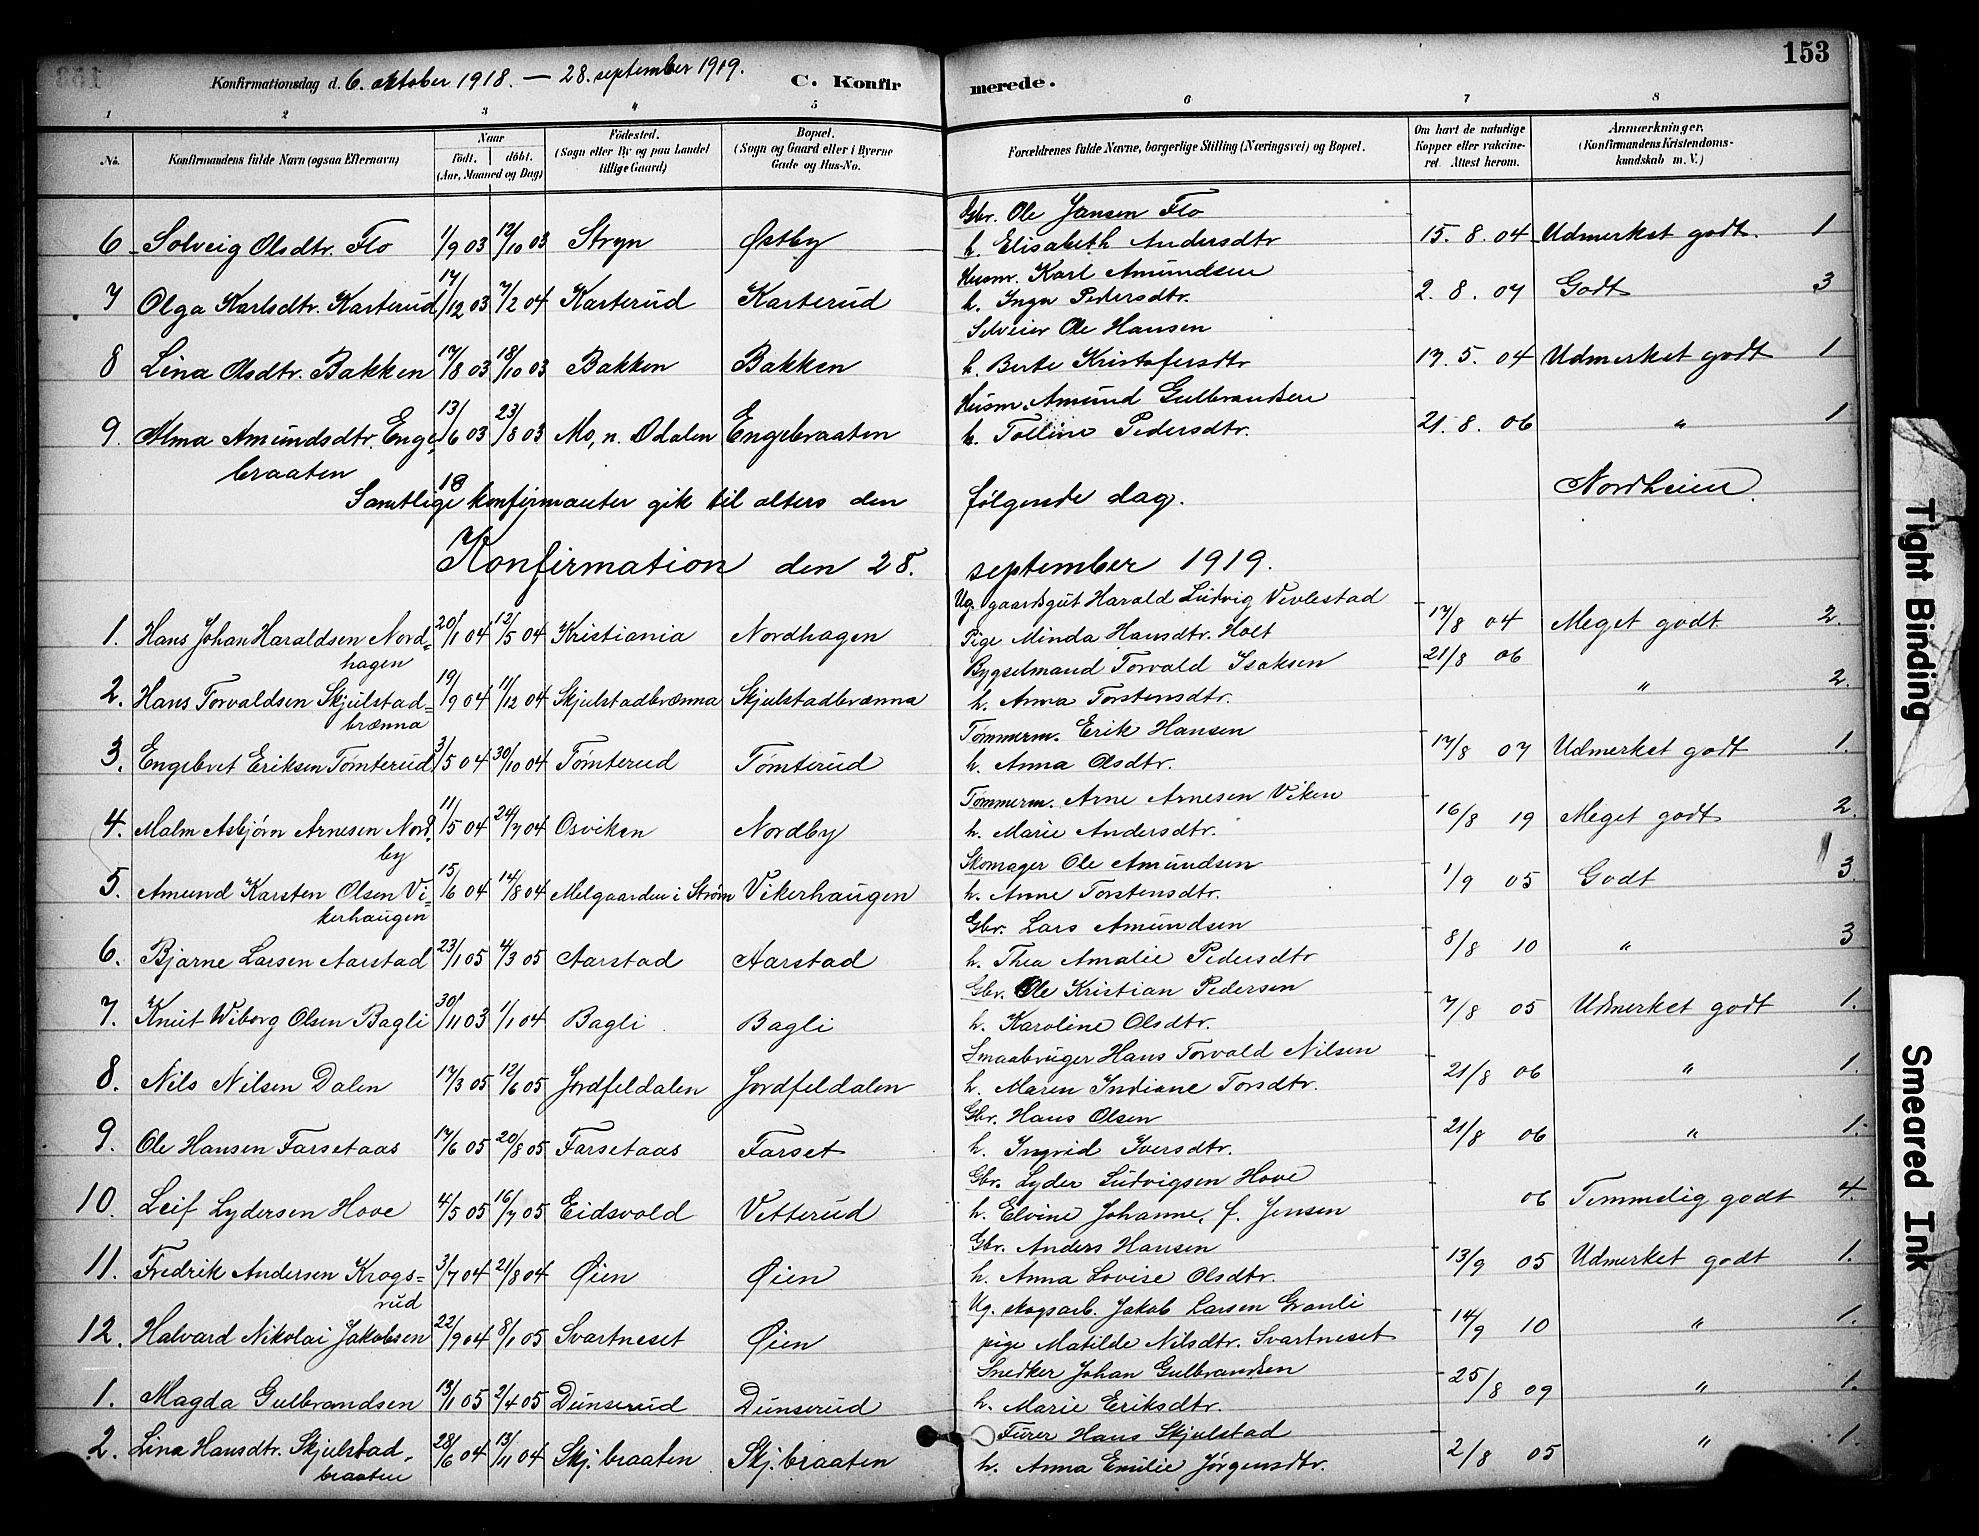 153
Konfirmationsdag d. 6. oktober 1918. — 28. september 1919. C. Konfir merede.
1 2 3 4 5 6 7 8
No. Konfirmandens fulde Navn (ogsaa Efternavn) Naar födt. döbt. (Aar, Maaned og Dag) Födested. (Sogn eller By og paa Landet tillige Gaard) Bopæl. (Sogn og Gaard eller i Byerne Gade og Hus-No. Forældrenes fulde Navne, borgerlige Stilling (Næringsvei) og Bopæl. Om havt de naturlige Kopper eller vakcineret. Attest herom. Anmærkninger. (Konfirmandens Kristendomskundskab m. V.)
Gbr. Ole Jansen Flo
6 Solveig Olsdtr. Flo 1/9 03 12/10 03 Stryn Østby h. Elisabeth Andersdtr 15. 8. 04 Udmerket godt. 1
Husm. Karl Amundsen
7 Olga Karlsdtr. Karterud 17/12 03 7/2 04 Karterud Karterud h. Inga Pedersdtr. 2. 8. 07 Godt 3
Selveier Ole Hansen
8 Lina Olsdtr. Bakken 17/8 03 18/10 03 Bakken Bakken h. Berte Kristofersdtr 17. 5. 04 Udmerket godt 1
Husm. Amund Gulbrandsen
9. Alma Amundsdtr. Enge- 13/6 03 23/8 03 Mo, n. Odalen Engebraaten h. Tolline Pedersdtr. 21. 8. 06 " 1
braaten
Samtlige 18 konfirmanter gik til alters den følgende dag. Nordheim
Konfirmation den 28. september 1919.
Ug. gaardsgut Harald Ludvig Vivlestad
1. Hans Johan Haraldsen Nord= 20/1 04 12/5 04 Kristiania Nordhagen Pige Minda Hansdtr. Holt 17/8 04 Meget godt 2.
hagen Bygselmand Torvald Isaksen 21/8 06
2. Hans Torvaldsen Skjulstad= 19/9 04 11/12 04 Skjulstadbrænna Skjulstadbrænna h. Anna Torstensdtr. " 2.
brænna Tømmerm. Erik Hansen
3. Engebret Eriksen Tømterud 3/5 04 30/10 04 Tømterud Tømterud h. Anna Olsdtr. 17/8 07 Udmerket godt 1.
Tømmerm. Arne Arnesen Viken
4. Malm Asbjørn Arnesen Nord= 11/5 04 24/7 04 Osviken Nordby h. Marie Andersdtr. 16/8 19 Meget godt 2.
by Skomager Ole Amundsen
5. Amund Karsten Olsen Vi= 15/6 04 14/8 04 Melgaarden i Strøm Vikerhaugen h. Anne Torstensdtr. 1/9 05 Godt 3
kerhaugen Gbr. Lars Amundsen
6. Bjarne Larsen Aarstad 23/1 05 4/3 05 Aarstad Aarstad h. Thea Amalie Pedersdtr 8/8 10 " 3
Gbr. Ole Kristian Pedersen
7. Knut Wiborg Olsen Bagli 30/11 03 1/1 04 Bagli Bagli h. Karoline Olsdtr. 7/8 05 Udmerket godt 1.
Smaabruger Hans Torvald Nilsen
8. Nils Nilsen Dalen 17/3 05 12/6 05 Jordfeldalen Jordfeldalen h. Maren Indiane Torsdtr. 21/8 06 " 1.
Gbr. Hans Olsen
9. Ole Hansen Farsetaas 17/6 05 20/8 05 Farsetaas Farset h. Ingrid Iversdtr. 21/8 06 " 1.
Gbr. Lyder Ludvigsen Hove
10. Leif Lydersen Hove 4/5 05 16/7 05 Eidsvold Vetterud h. Elvine Johanne, f. Jensen 06 Temmelig godt 4.
Gbr. Anders Hansen
11. Fredrik Andersen Krogs= 3/7 04 21/8 04 Øien Øien h. Anna Lovise Olsdtr. 13/9 05 Udmerket godt 1.
rud Ug. skogsarb. Jakob Larsen Granli
12. Halvard Nikolai Jakobsen 22/9 04 8/1 05 Svartneset Øien pige Matilde Nilsdtr. Svartneset 14/9 10 " 1.
Snedker Johan Gulbrandsen
1. Magda Gulbrandsen 13/1 05 2/4 05 Dunserud Dunserud h. Marie Eriksdtr. 25/8 09 " 1.
Furer Hans Skjulstad
2. Lina Hansdtr. Skjulstad- 28/6 04 13/11 04 Skj. braaten Skj. braaten h. Anna Emilie Jørgensdtr. 2/8 05 " 1.
braaten
Tight Binding
Smeared Ink